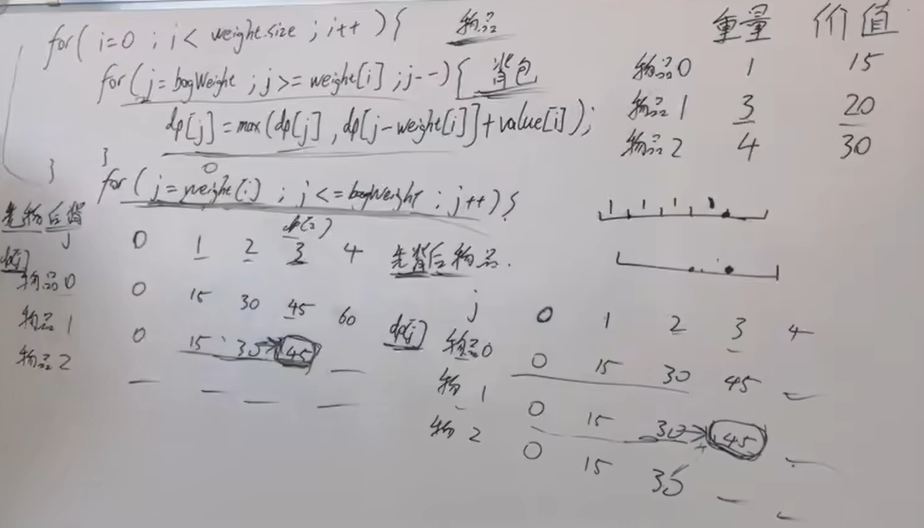 for( i=0 ; i< weight.size ; i++ ){ 物品
for(j=bagWeight ; j>= weight[i] ; j--){ 背包
dp[j] = max(dp[j] , dp[j-weight[i]]+value[i]);
}
}
0
for (j=weight[i] ; j<=bagWeight ; j++){
重量 价值
物品0 1 15
物品1 3 20
物品2 4 30
先物后背
dp[2]
j 0 1 2 3 4
dp[j]
物品0 0 15 30 45 60
物品1 0 15 30 45
物品2
先背后物品.
j 0 1 2 3 4
dp[j]
物品0 0 15 30 45
物 1 0 15 30 45
物 2 0 15 35